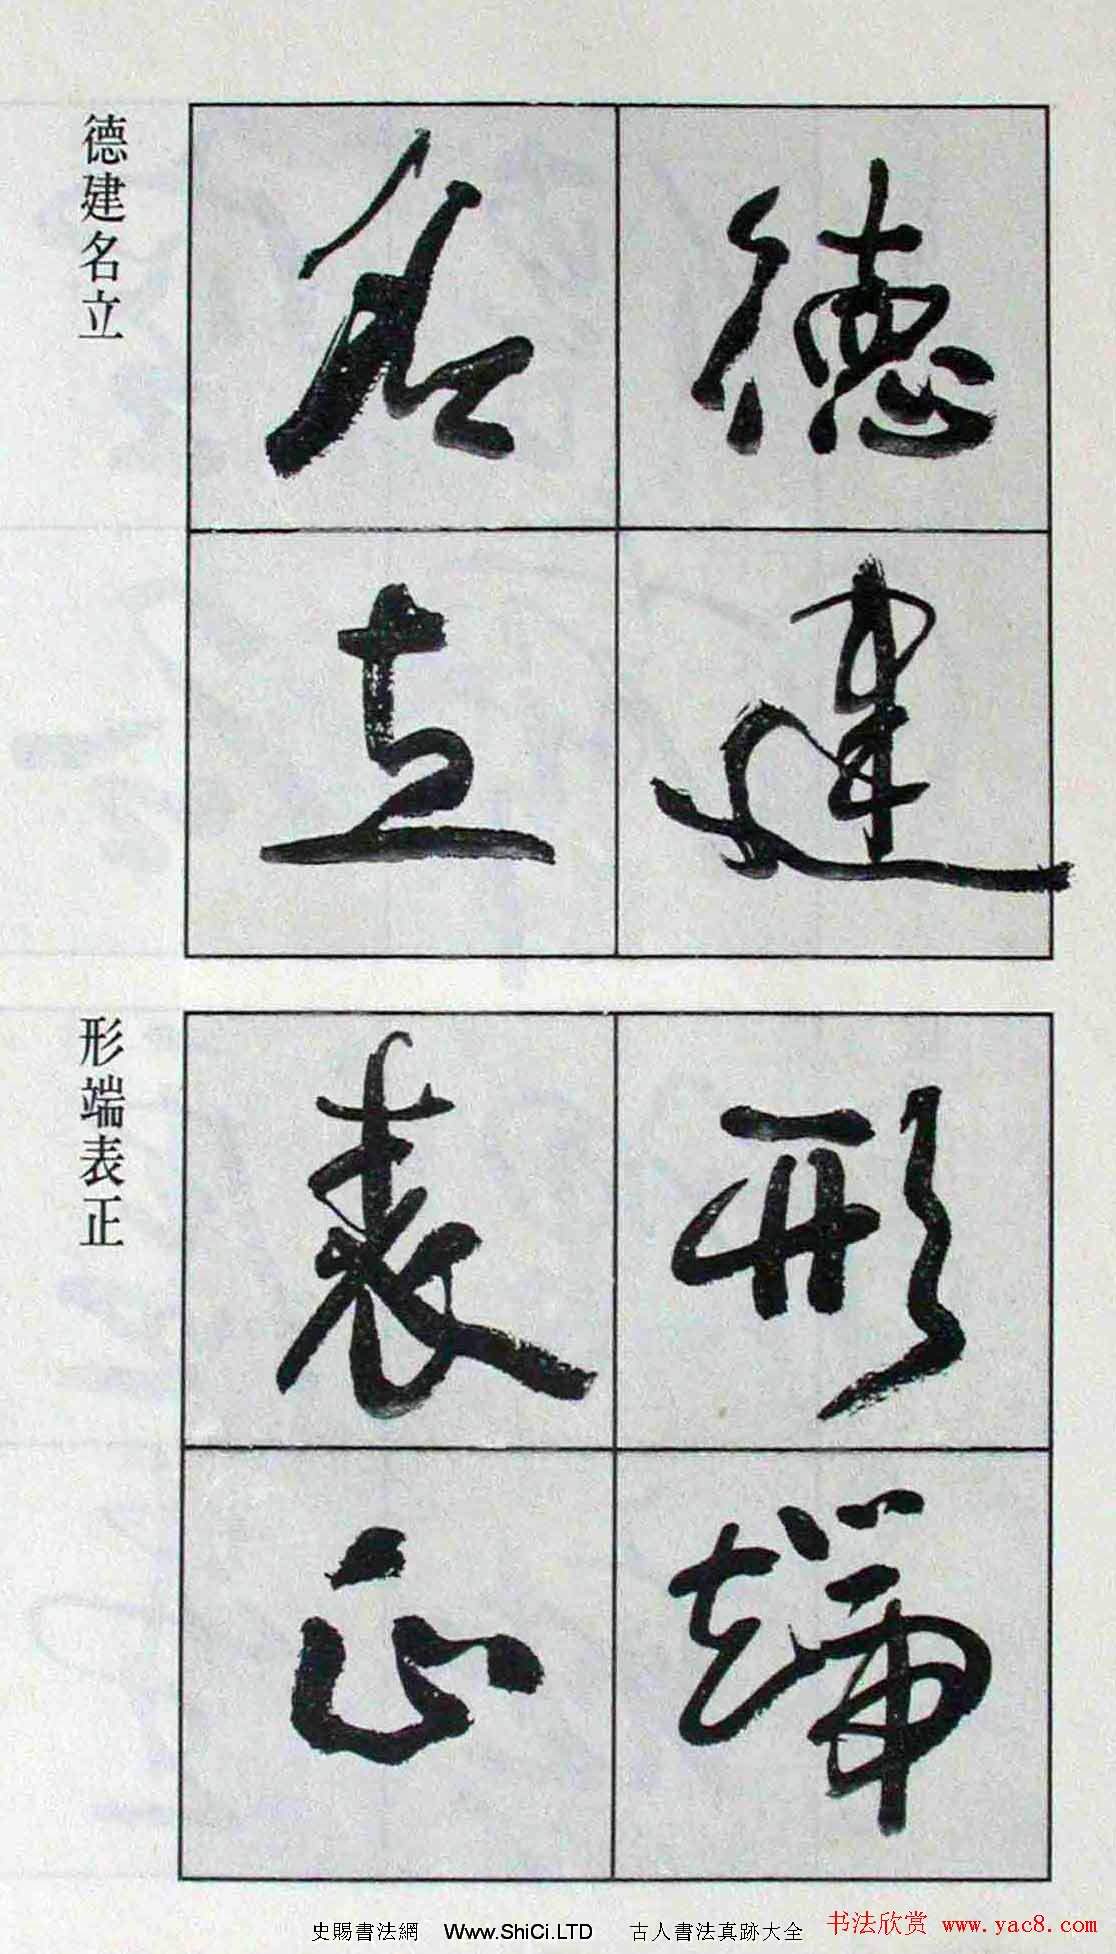 德建
名立
德建名立
形端
表正
形端表正
史賜書法網 Www.ShiCi.LTD 古人書法真跡大全
书法欣赏 www.yac8.com